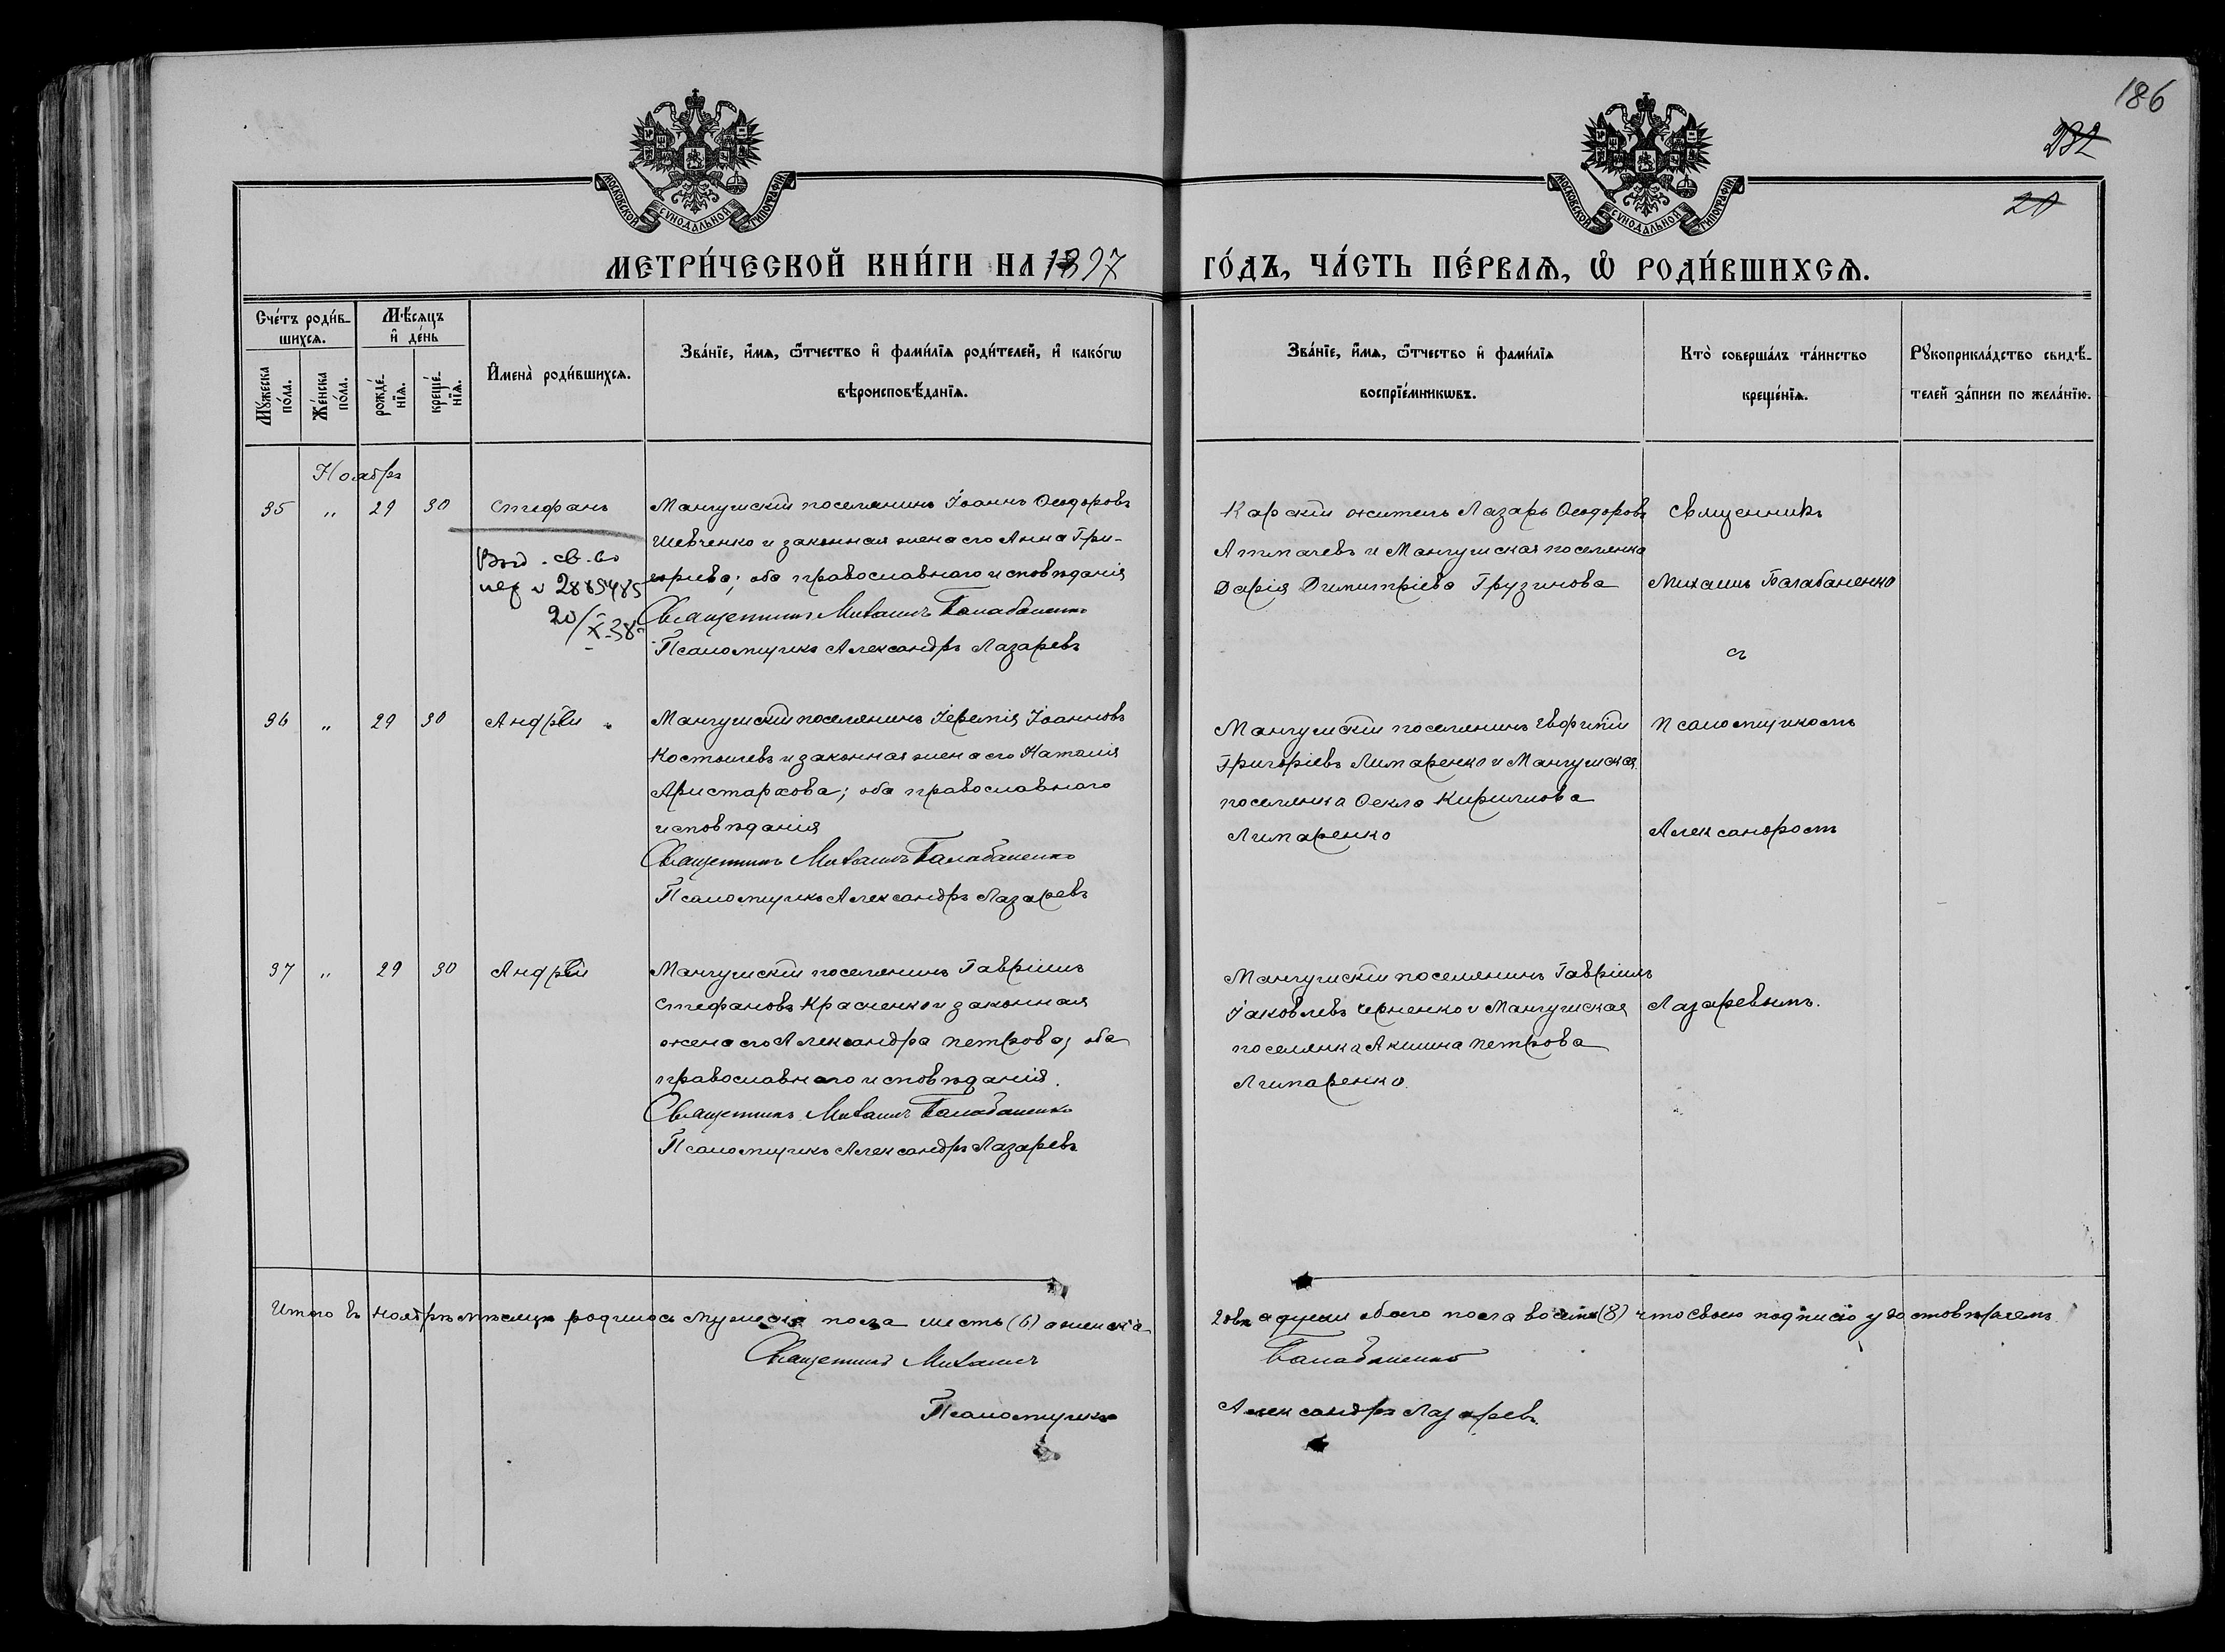 186
232
20
МОСКОВСКОЙ СѴНОДАЛЬНОЙ ТИПОГРАФІИ
МОСКОВСКОЙ СѴНОДАЛЬНОЙ ТИПОГРАФІИ
МЕТРИ́ЧЕСКОЙ КНИ́ГИ НА 1897 ГО́ДЪ, ЧА́СТЬ ПЕ́РВАѦ, Ѽ РОДИ́ВШИХСѦ.
Сче́тъ роди́в-
шихсѧ.
Мꙋ́жеска
по́ла.
Же́нска
по́ла.
Мѣ́сѧцъ
и҆ де́нь
рожде́-
нїѧ.
креще́-
нїѧ.
И҆мена̀ роди́вшихсѧ.
Зва́нїе, и҆́мѧ, ѻ҆́тчество и҆ фами́лїѧ роди́телей, и҆ како́гѡ
вѣроисповѣ́данїѧ.
Зва́нїе, и҆́мѧ, ѻ҆́тчество и҆ фами́лїѧ
воспрїе́мникѡвъ.
Кто̀ соверша́лъ та́инство
креще́нїѧ.
Рꙋкоприкла́дство свидѣ́-
телей за́писи по жела́нїю.
Ноябрь
35 „ 29 30 Стефанъ
Выд. св-во
20/X-38
Мангушскій поселянинъ Іоаннъ Ѳеодоровъ
Шевченко и законная жена его Анна Гри-
горіева; оба православнаго исповѣданія
Священникъ Михаилъ Балабаненко
Псаломщикъ Александръ Лазаревъ
Карскій житель Лазарь Ѳеодоровъ
Атмачевъ и Мангушская поселянка
Дарія Димитріева Грузинова
Священникъ
Михаилъ Балабаненко
съ
36 „ 29 30 Андрей
Мангушскій поселянинъ Іеремія Іоанновъ
Костылевъ и законная жена его Наталія
Аристархова; оба православнаго
исповѣданія
Священникъ Михаилъ Балабаненко
Псаломщикъ Александръ Лазаревъ
Мангушскій поселянинъ Евфимій
Григоріевъ Липаренко и Мангушская
поселянка Ѳекла Кириллова
Липаренко
Псаломщикомъ
Александромъ
37 „ 29 30 Андрей
Мангушскій поселянинъ Гавріилъ
Стефановъ Красненко и законная
жена его Александра Петрова; оба
православнаго исповѣданія.
Священникъ Михаилъ Балабаненко
Псаломщикъ Александръ Лазаревъ
Мангушскій поселянинъ Гавріилъ
Іаковлевъ Черненко и Мангушская
поселянка Акилина Петрова
Липаренко.
Лазаревымъ.
Итого въ ноябрѣ мѣсяцѣ родилось мужеска пола шесть (6) а женска 2 двѣ а души обоего пола восемь (8) что своею подписію удостовѣряемъ.
Священникъ Михаилъ Балабаненко
Псаломщикъ Александръ Лазаревъ.